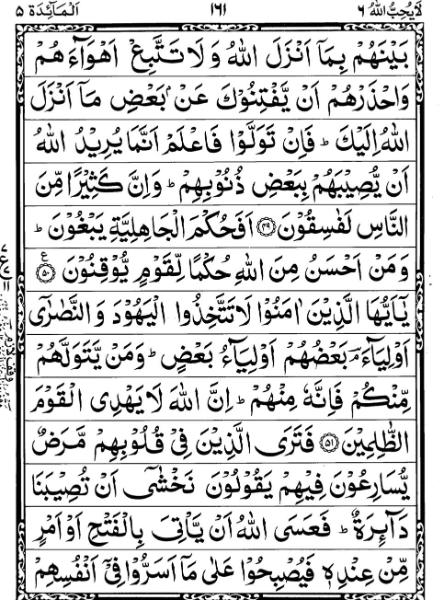 اَلْمَآئِدَة ٥ ١٦١ لَا يُحِبُّ اللهُ ٦
بَيْنَهُمْ بِمَآ اَنْزَلَ اللهُ وَلَا تَتَّبِعْ اَهْوَآءَهُمْ
وَاحْذَرْهُمْ اَنْ يَّفْتِنُوْكَ عَنْۢ بَعْضِ مَآ اَنْزَلَ
اللهُ اِلَيْكَ ؕ فَاِنْ تَوَلَّوْا فَاعْلَمْ اَنَّمَا يُرِيْدُ اللهُ
اَنْ يُّصِيْبَهُمْ بِبَعْضِ ذُنُوْبِهِمْ ؕ وَاِنَّ كَثِيْرًا مِّنَ
النَّاسِ لَفٰسِقُوْنَ ﴿٤٩﴾ اَفَحُكْمَ الْجَاهِلِيَّةِ يَبْغُوْنَ ؕ
وَمَنْ اَحْسَنُ مِنَ اللهِ حُكْمًا لِّقَوْمٍ يُّوْقِنُوْنَ ﴿٥٠﴾ ع
يٰۤاَيُّهَا الَّذِيْنَ اٰمَنُوْا لَا تَتَّخِذُوا الْيَهُوْدَ وَالنَّصٰرٰۤى
اَوْلِيَآءَ ۘ بَعْضُهُمْ اَوْلِيَآءُ بَعْضٍ ؕ وَمَنْ يَّتَوَلَّهُمْ
مِّنْكُمْ فَاِنَّهٗ مِنْهُمْ ؕ اِنَّ اللهَ لَا يَهْدِى الْقَوْمَ
الظّٰلِمِيْنَ ﴿٥١﴾ فَتَرَى الَّذِيْنَ فِيْ قُلُوْبِهِمْ مَّرَضٌ
يُّسَارِعُوْنَ فِيْهِمْ يَقُوْلُوْنَ نَخْشٰۤى اَنْ تُصِيْبَنَا
دَآئِرَةٌ ؕ فَعَسَى اللهُ اَنْ يَّاْتِيَ بِالْفَتْحِ اَوْ اَمْرٍ
مِّنْ عِنْدِهٖ فَيُصْبِحُوْا عَلٰى مَآ اَسَرُّوْا فِيْۤ اَنْفُسِهِمْ